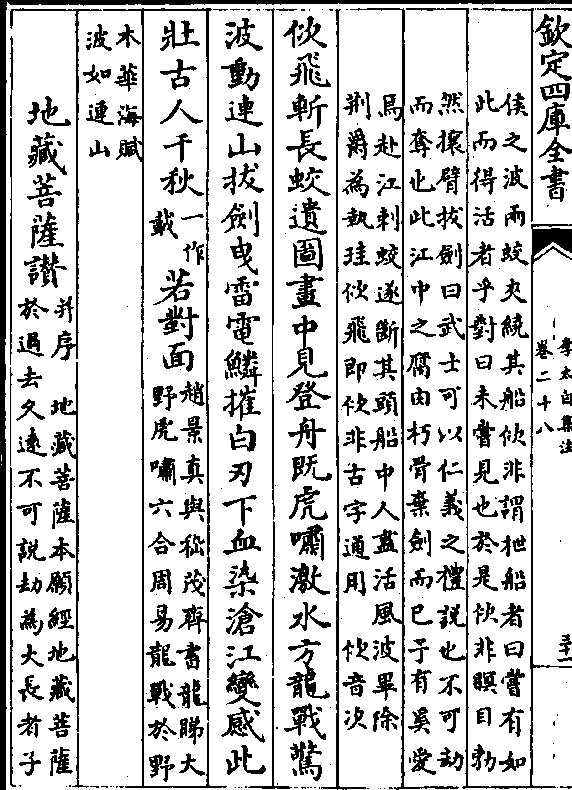 欽定四庫全書
李太白集注
卷二十八
侯之波兩蛟夾繞其船佽非謂枻船者曰嘗有如
此而得活者乎對曰未嘗見也於是佽非瞑目勃
然攘臂拔劍曰武士可以仁義之禮說也不可劫
而奪也此江中之腐肉朽骨棄劍而已予有奚愛
焉赴江刺蛟遂斷其頭船中人盡活風波畢除
荆爵為執珪佽飛即佽非古字通用　佽音次
佽飛斬長蛟遺圖畫中見登舟既虎嘯激水方龍戰驚
波動連山拔劍曳雷電鱗摧白刃下血染滄江變感此
壯古人千秋
一作
載
若對面
趙景真與嵇茂齊書龍睇大
野虎嘯六合周易龍戰於野
木華海賦
波如連山
地藏菩薩讃
并序　地藏菩薩本願經地藏菩薩
於過去久遠不可說劫為大長者子